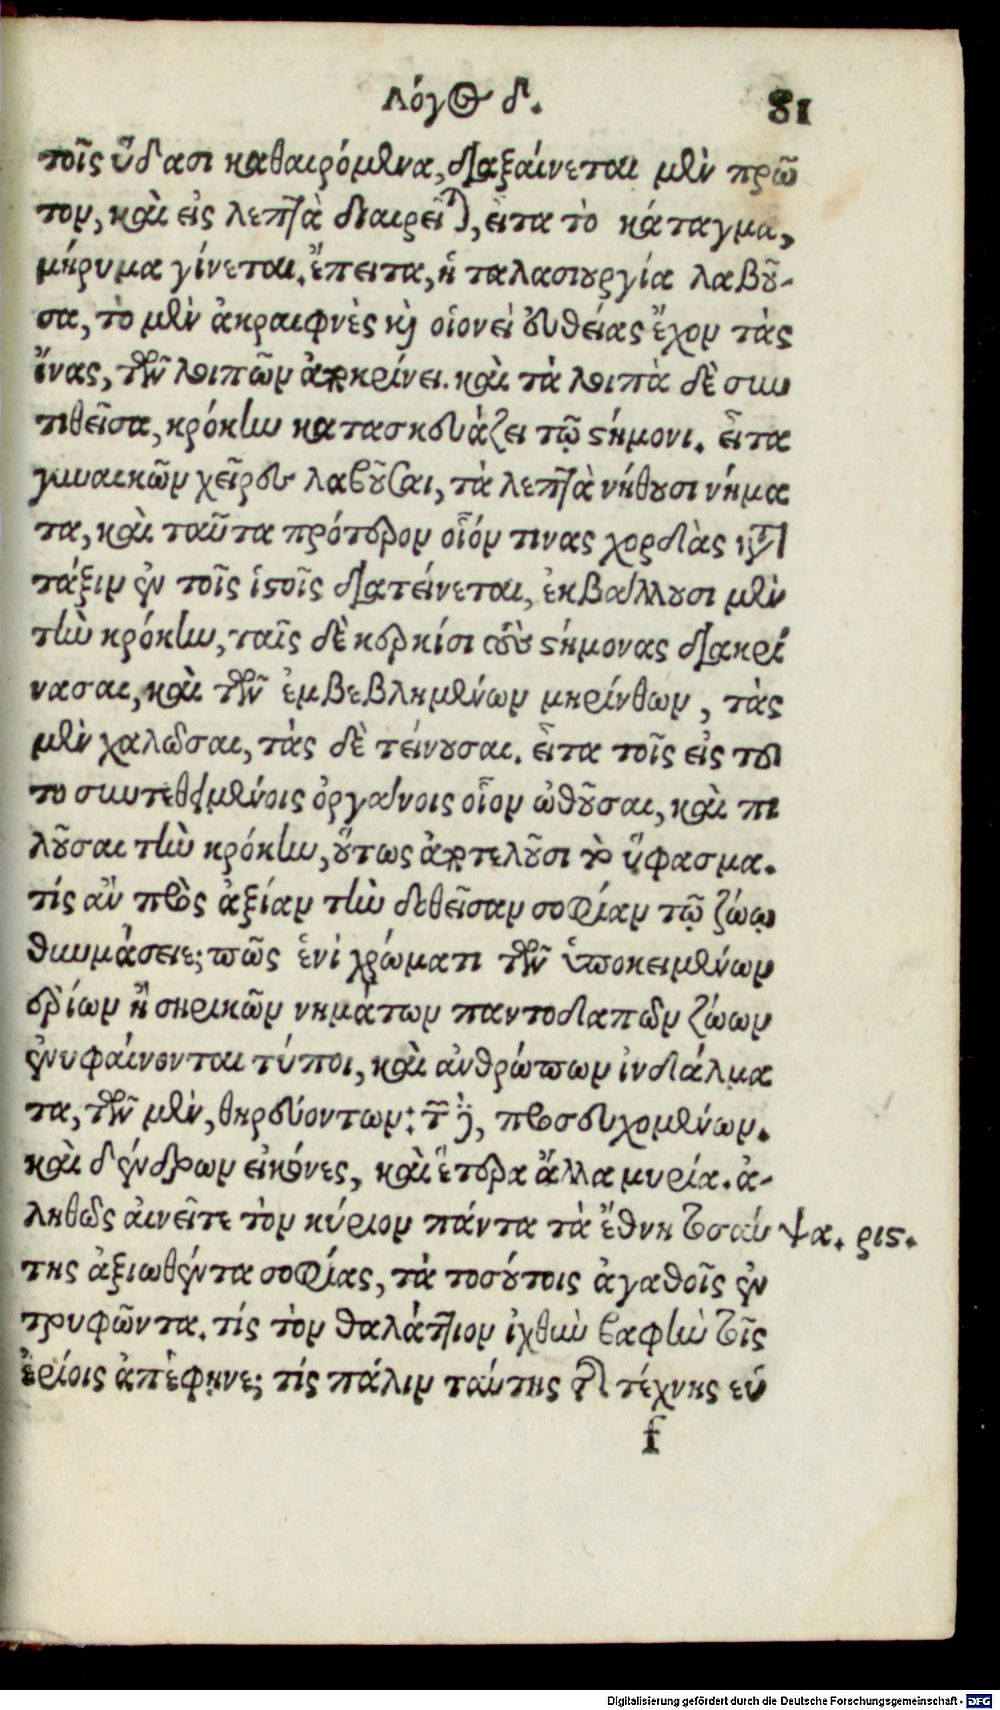 Λόγος δ. 81
τοῖς ὕδασι καθαιρόμενα, διαξαίνεται μὲν πρῶ
τον, καὶ εἰς λεπτὰ διαιρεῖται, εἶτα τὸ κάταγμα,
μήρυμα γίνεται. ἔπειτα, ἡ ταλασιουργία λαβοῦ-
σα, τὸ μὲν ἀκραιφνὲς καὶ οἱονεὶ εὐθείας ἔχον τὰς
ἵνας, τῶν λοιπῶν ἀποκρίνει. καὶ τὰ λοιπὰ δὲ συν
τιθεῖσα, κρόκην κατασκευάζει τῷ στήμονι. εἶτα
γυναικῶν χεῖρες λαβοῦσαι, τὰ λεπτὰ νήθουσι νήμα
τα, καὶ ταῦτα πρότερον οἷόν τινας χορδὰς κατὰ
τάξιν ἐν τοῖς ἱστοῖς διατείνεται, ἐκβάλλουσι μὲν
τὴν κρόκην, ταῖς δὲ κερκίσι τοὺς στήμονας διακρί
νασαι, καὶ τῶν ἐμβεβλημένων μηρίνθων, τὰς
μὲν χαλῶσαι, τὰς δὲ τείνουσαι. εἶτα τοῖς εἰς τοῦ
το συντεθειμένοις ὀργάνοις οἷον ὠθοῦσαι, καὶ πι
λοῦσαι τὴν κρόκην, οὕτως ἀποτελοῦσι τὸ ὕφασμα.
τίς ἂν πρὸς ἀξίαν τὴν δοθεῖσαν σοφίαν τῷ ζώῳ
θαυμάσειε; πῶς ἑνὶ χρώματι τῶν ὑποκειμένων
ἐρίων ἢ σηρικῶν νημάτων παντοδαπῶν ζώων
ἐνυφαίνονται τύποι, καὶ ἀνθρώπων ἰνδάλμα
τα, τῶν μὲν, θηρευόντων: τῶν δὲ, προσευχομένων.
καὶ δένδρων εἰκόνες, καὶ ἕτερα ἄλλα μυρία. ἀ-
ληθῶς αἰνεῖτε τὸν κύριον πάντα τὰ ἔθνη τοσαύ ψα. ριϛ.
της ἀξιωθέντα σοφίας, τὰ τοσούτοις ἀγαθοῖς ἐν
τρυφῶντα. τίς τὸν θαλάττιον ἰχθὺν βαφὴν τοῖς
ἐρίοις ἀπέφηνε; τίς πάλιν ταύτης τῆς τέχνης εὑ
f
Digitalisierung gefördert durch die Deutsche Forschungsgemeinschaft - DFG